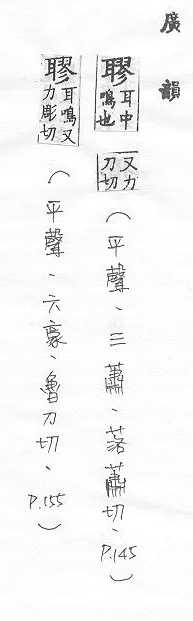 廣韻
聊 耳中鳴也 又力刀切 (平聲、三蕭、落蕭切、P.145)
膠 耳鳴又力彫切 (平聲、六豪、魯刀切、P.155)